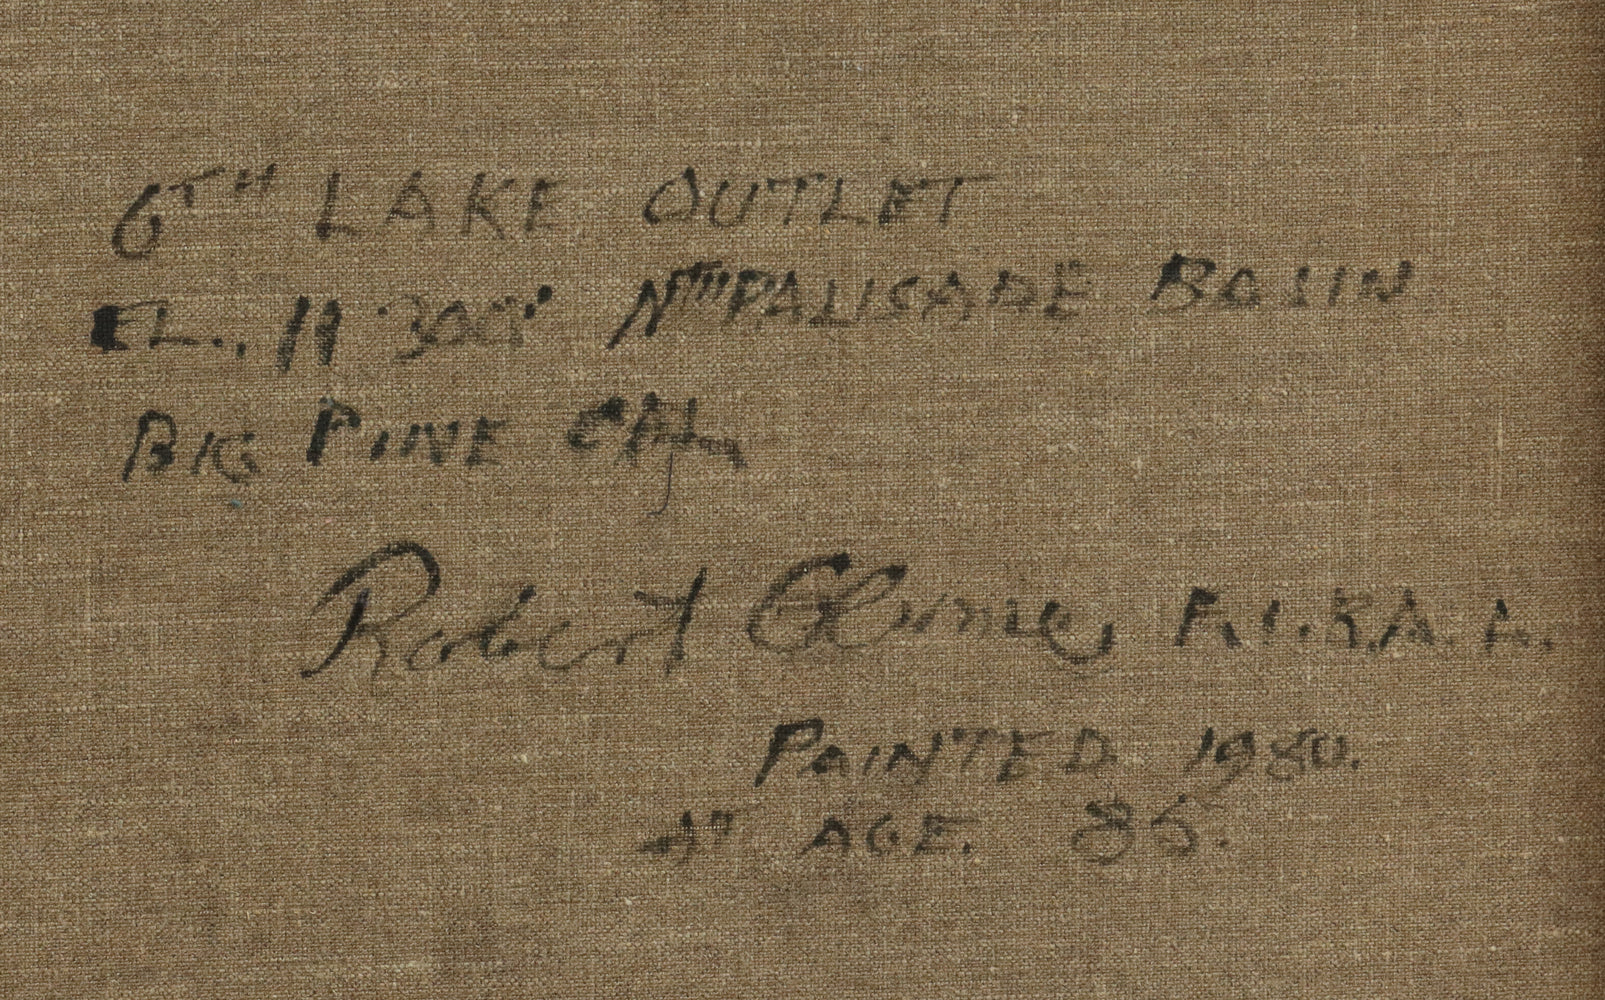 6TH LAKE OUTLET
EL., 11 300' NTH PALISADE BASIN
BIG PINE CAL
Robert Clunie, F.I.B.A.A.
PAINTED 1980.
AT AGE. 85.